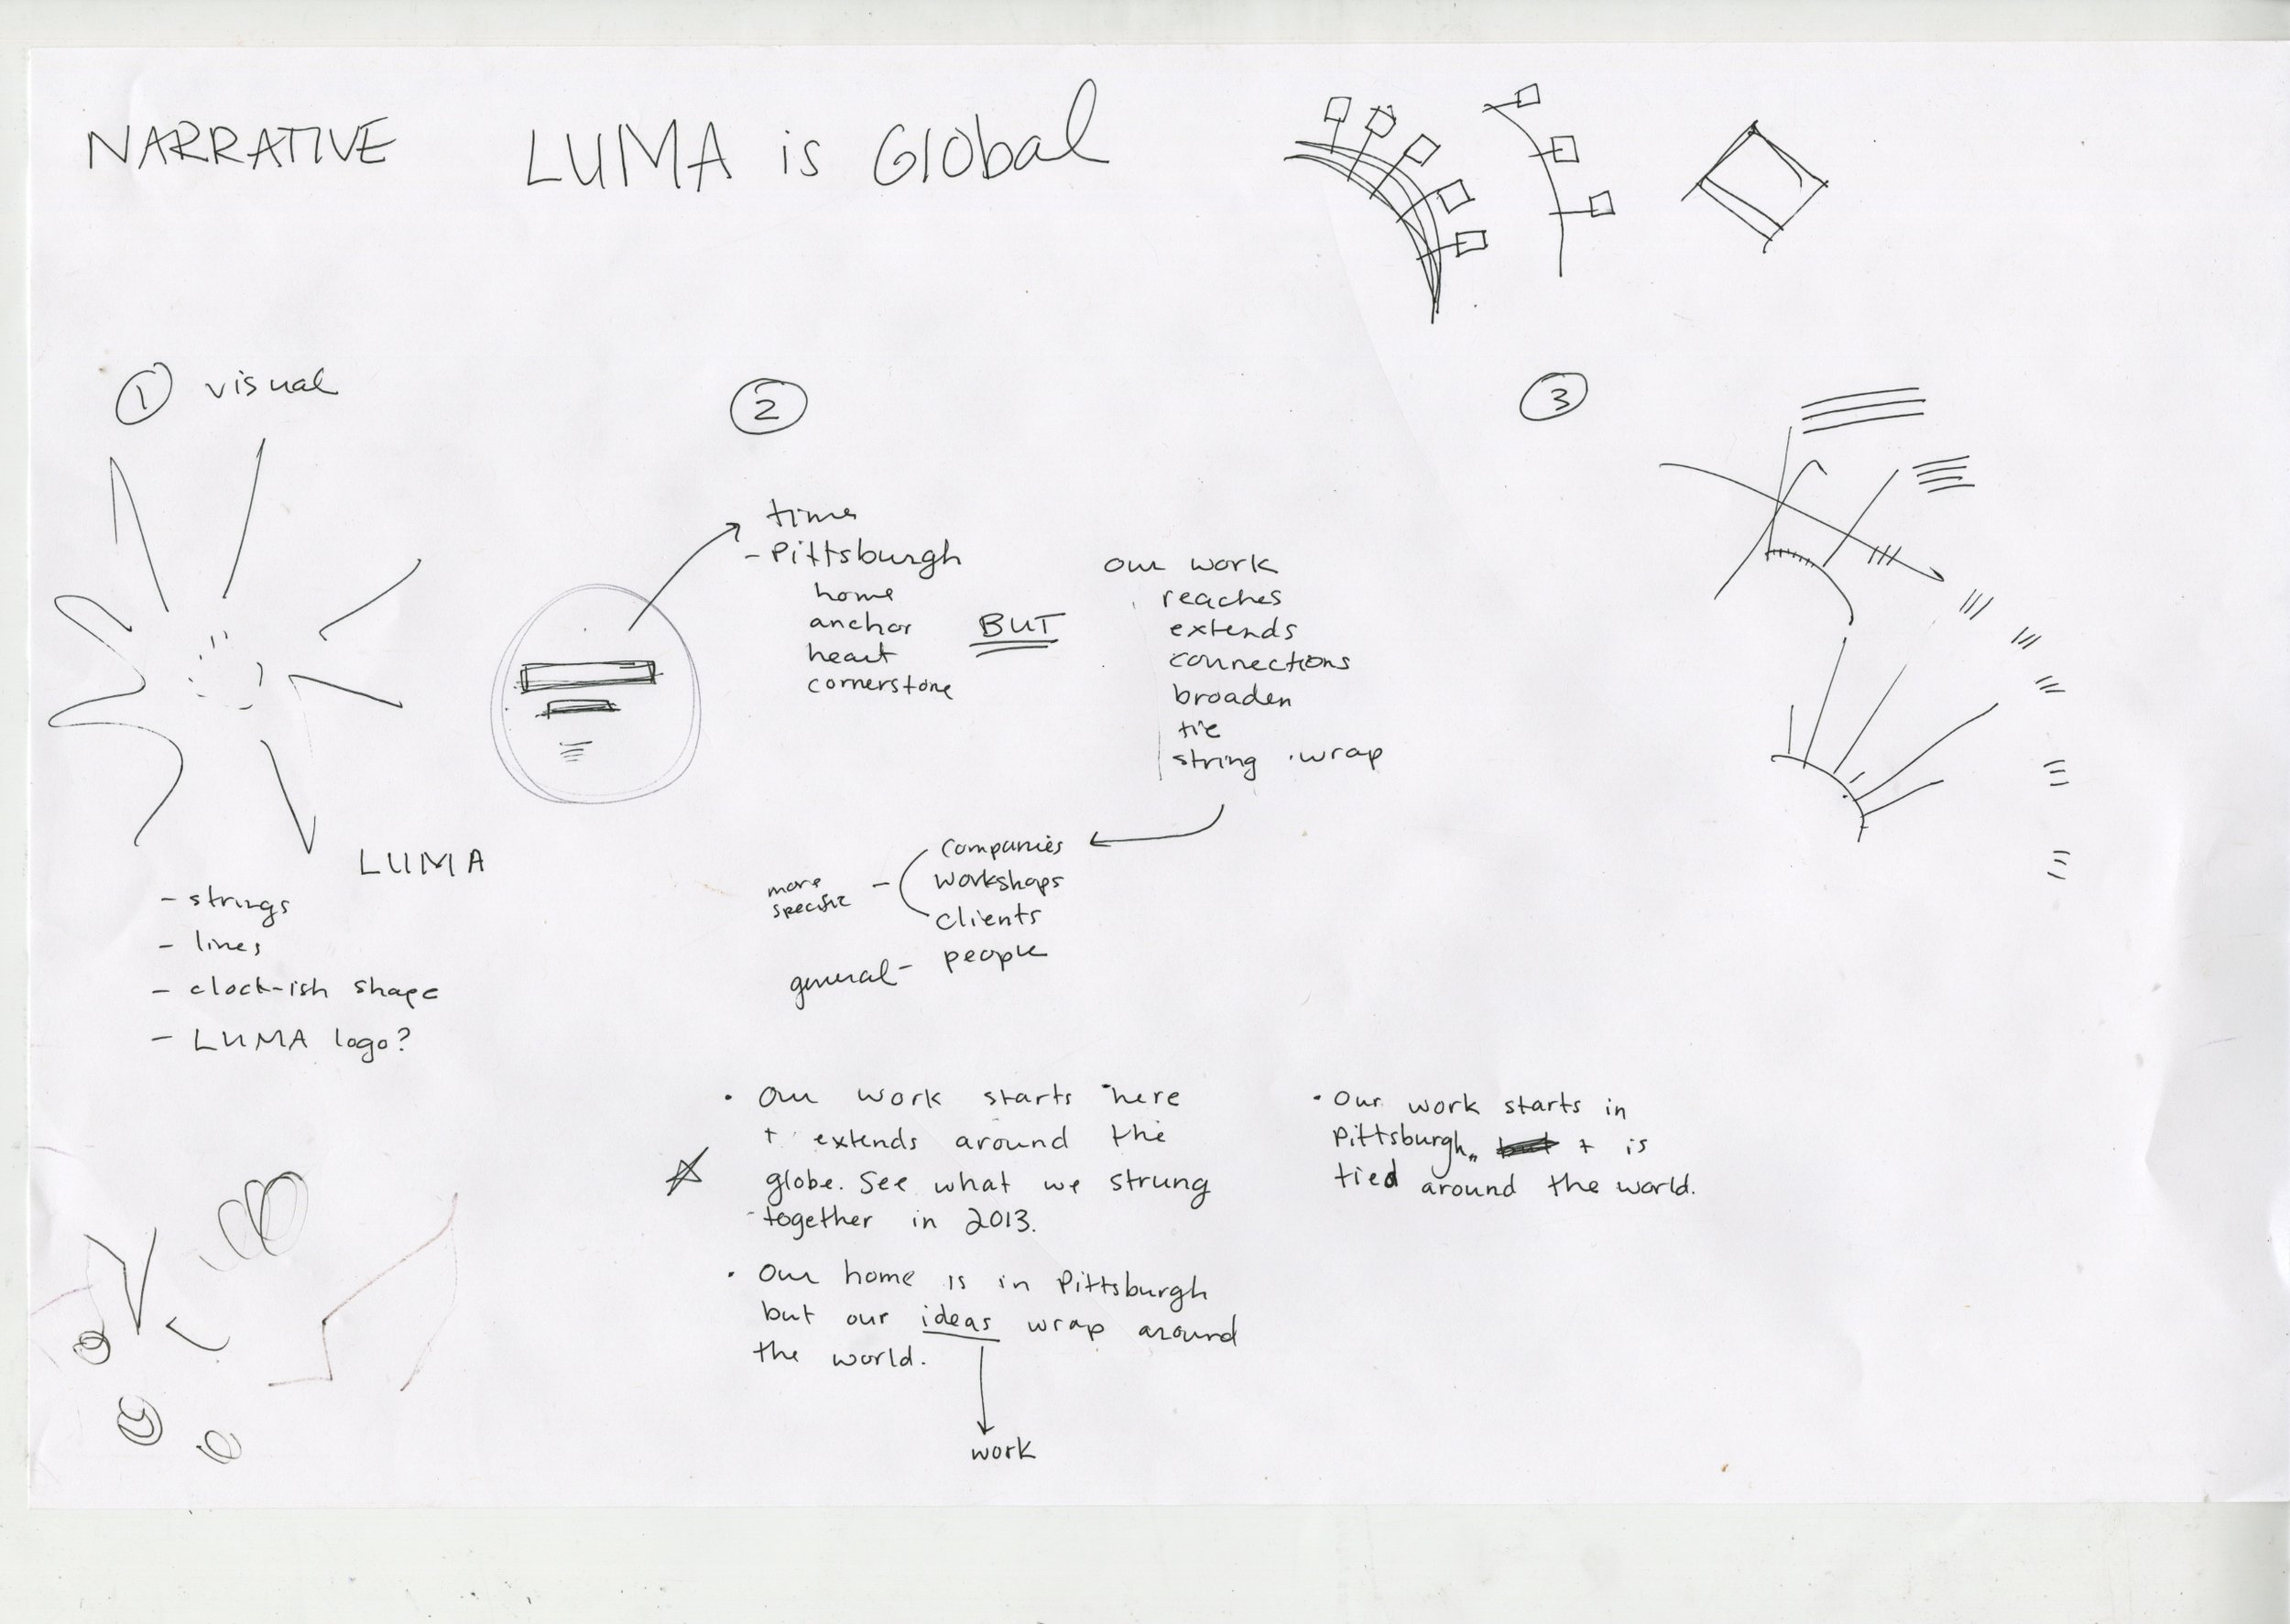 NARRATIVE
LUMA is Global
1 visual
LUMA
- strings
- lines
- clock-ish shape
- LUMA logo?
2
time
- Pittsburgh
home
anchor
heart
cornerstone
BUT
our work
reaches
extends
connections
broaden
tie
string · wrap
more
specific -
companies
workshops
clients
general - people
· Our work starts here
+ extends around the
globe. See what we strung
together in 2013.
· Our home is in Pittsburgh
but our ideas wrap around
the world.
work
· Our work starts in
Pittsburgh, + is
tied around the world.
3